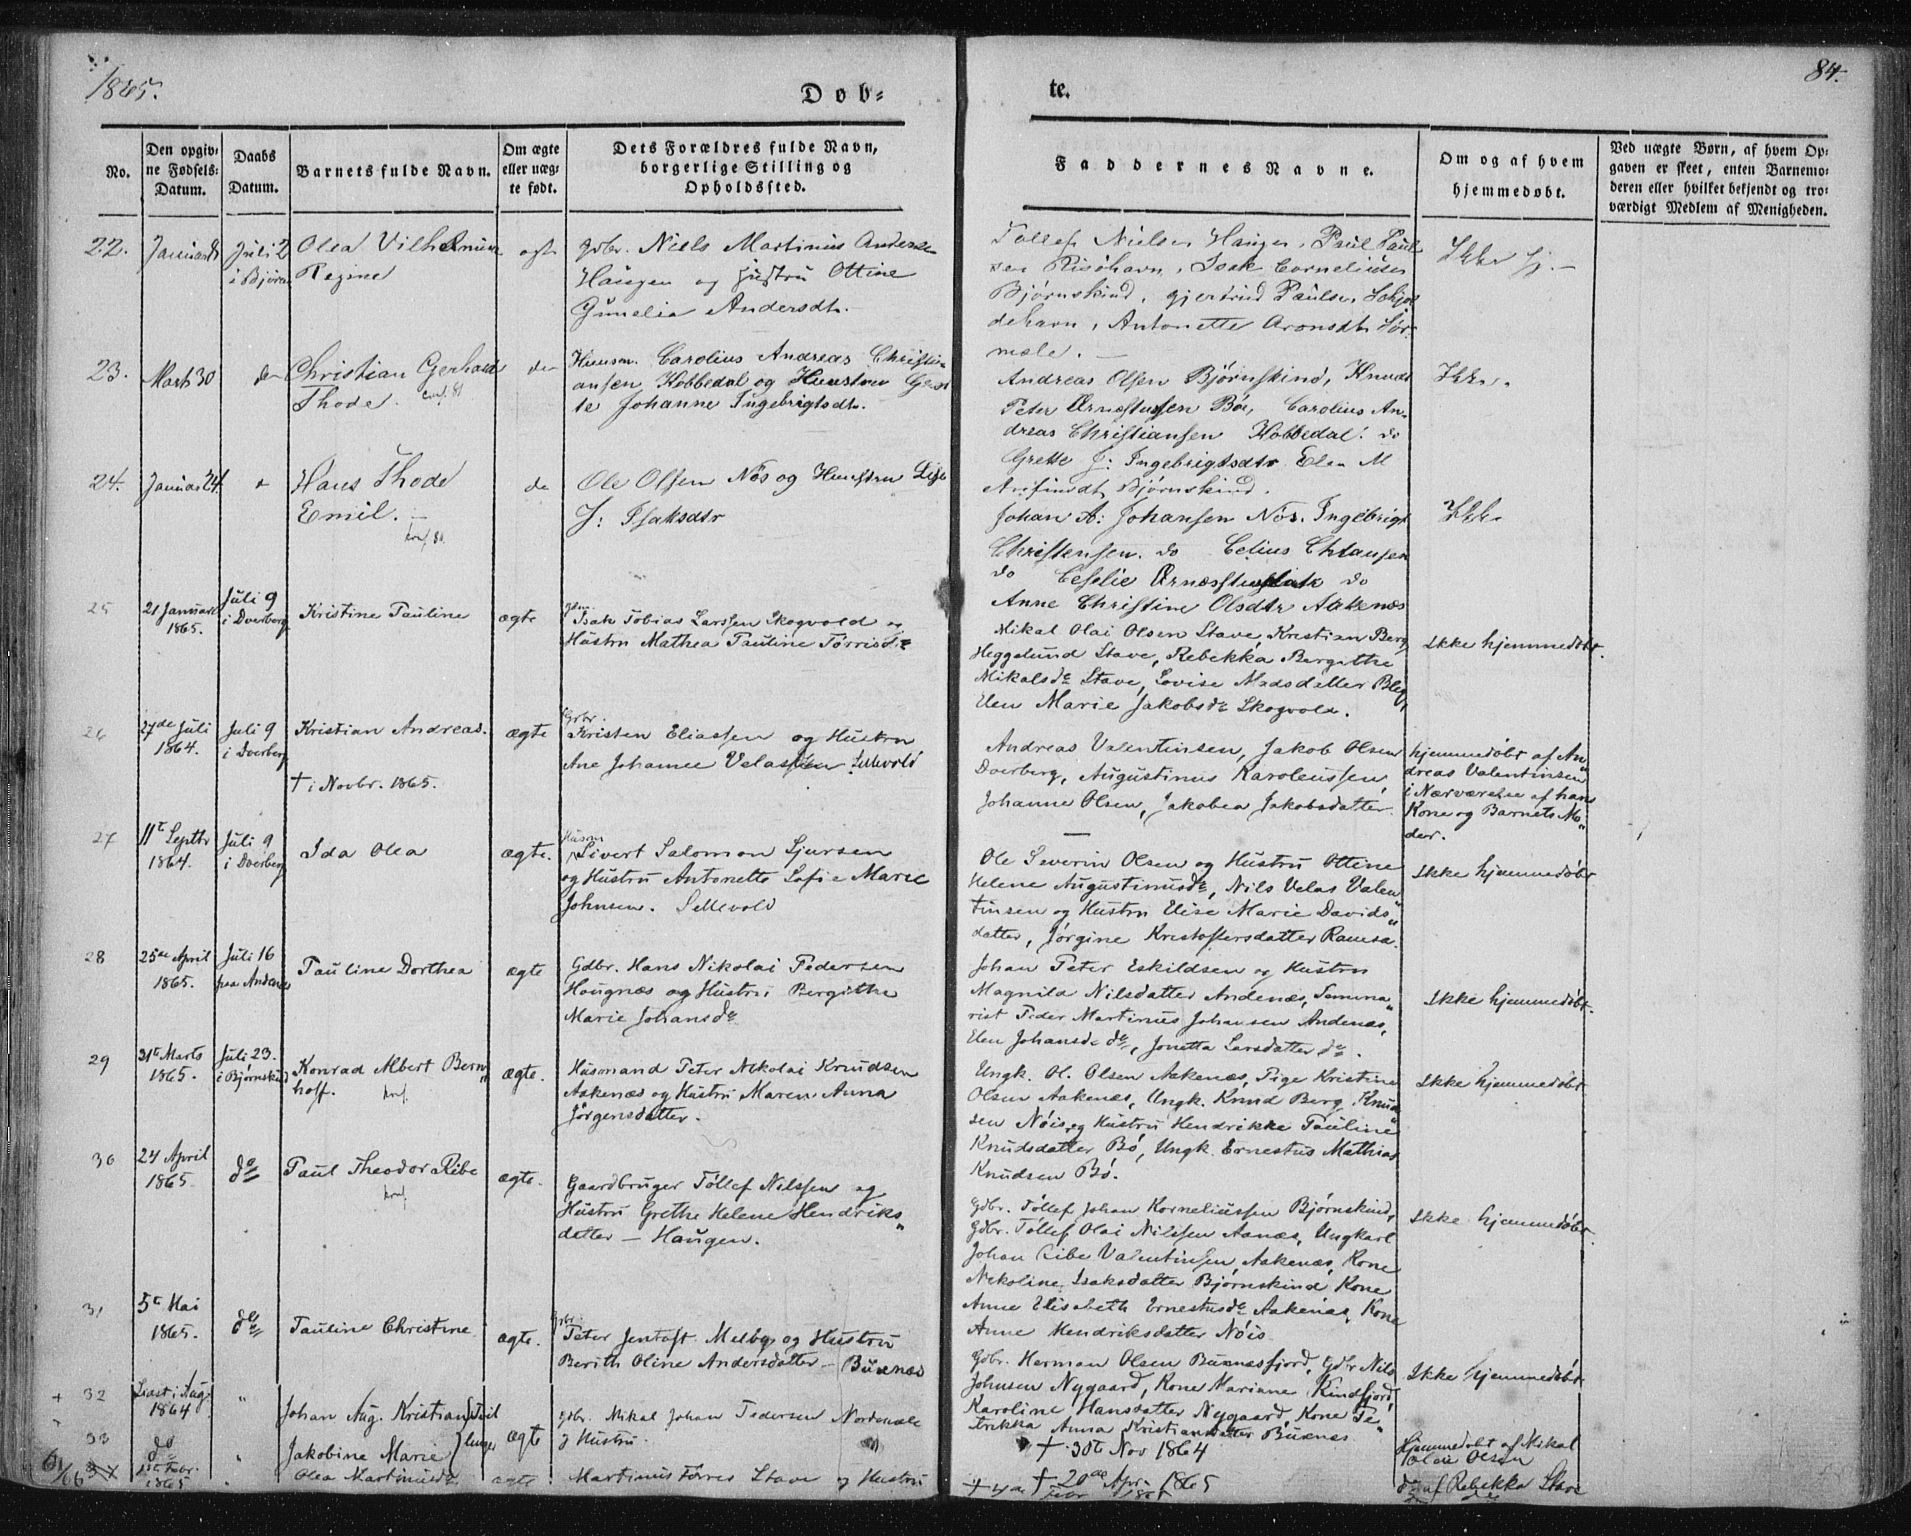 1865.
Døb-
te.
84.
No.
Den opgiv-
ne Fødsels-
Datum.
Daabs
Datum.
Barnets fulde Navn.
Om ægte
eller uæg-
te født.
Dets Forældres fulde Navn,
borgerlige Stilling og
Opholdssted.
Faddernes Navne.
Om og af hvem
hjemmedøbt.
Ved uægte Børn, af hvem Op-
gaven er skeet, enten Barnemo-
deren eller hvilket bekjendt og tro-
værdigt Medlem af Menigheden.
22.
Juli 2
i Bjørn
Olea Vilhelmine
Regine
Gdbr. Niels Martinus Anders
Haugen og Hustru Ottine
Andersdtr.
Tollef Nielsen Haugen, Paul Paul
sen Risøhavn, Isak Corneliusen
Bjørnskind,
Antonette Aronsdtr
Ikke hj.
23.
Marts 30
do
Christian Gerhard
Thode.
conf. 81
do
Huusm. Carolius Andreas Christi-
ansen Kobbedal og Huustru Gret
te Johanne Ingebrigtsdtr.
Andreas Olsen Bjørnskind, Knud
Peter Ærnæstussen Bøe, Carolius An-
dreas Christiansen Kobbedal. do
Grette J: Ingebrigtsdtr Elen M
Arnfindtr Bjørnskind.
Ikke.
24.
Januar 24
Hans Thode
Emil.
konf. 80.
do
Ole Olsen Nös og Huustru Lise
J: Isaksdtr
Johan A: Johansen Nös. Ingebrigt
Christensen. do
do
do
Anne Christine Olsdtr Aakenæs
Ikke
25
21 Januar
1865.
Juli 9
i Dverberg
Kristine Pauline
ægte
Isak Tobias Larssen Skogvold og
Hustru Mathea Pauline Tørrisdr
Mikal Olai Olsen Stave, Kristian Berg
Heggelund Stave, Rebekka Bergithe
Mikalsdr Stave, Lovise Madsdatter Bleg,
Elen Marie Jakobsdr Skogvold.
Ikke hjemmedøbt.
26
27de Juli
1864.
Juli 9
i Dverberg
Kristian Andreas.
† i Novbr. 1865.
ægte
Grbr.
Kristen Eliassen og Hustru
Ane Johanne Velassen Sellevold
Andreas Valentinsen, Jakob Olsen
Dverberg, Augustinus Karoleussen,
Johanne Olsen, Jakobea Jakobsdatter
hjemmedøbt af An-
dreas Valentinsen
i Nærværelse af hans
Kone og Barnets Mo-
der.
27
11te Septbr
1864.
Juli 9
i Dverberg
Ida Olea
ægte.
Husm
Sivert Salomon Sjursen
og Hustru Antonette Sofie Marie
Johnsen. Sellevold
Ole Severin Olsen og Hustru Ottine
Helene Augustinusdr, Nils Velas Valen-
tinsen og Hustru Elise Marie Davids-
datter, Jørgine Kristoffersdatter Ramsa.
Ikke hjemmedøbt
28
25de April
1865.
Juli 16
paa Andenes
Pauline Dorthea
ægte
Gdbr. Hans Nikolai Pedersen
Haugnæs og Hustru Bergithe
Marie Johansdr
Johan Peter Eskildsen og Hustru
Magnila Nilsdatter Andenæs, Semina-
rist Peder Martinus Johansen Andenæs,
Elen Johansdr do, Jonetta Larsdatter do.
Ikke hjemmedøbt.
29
31te Marts
1865.
Juli 23.
i Bjørnskind
Konrad Albert Bern-
hoff.
konf.
ægte.
Husmand Peter Nikolai Knudsen
Aakenæs og Hustru Maren Anna
Jørgensdatter.
Ungk. O. Olsen Aakenæs, Pige Kristine
Olsen Aakenæs, Ungk. Knud Berg Knud-
sen Nöis og Hustru Hendrikke Pauline
Knudsdatter Bö, Ungk. Ernestus Mathias
Knudsen Bö.
Ikke hjemmedøbt
30
24 April
1865.
do
Paul Theodor Ribe
konf.
ægte.
Gaardbruger Tøllef Nilssen og
Hustru Grethe Helene Hendriks-
datter - Haugen.
Gdbr. Tøllef Johan Korneliussen Bjørnskind,
Gdbr. Tøllef Olai Nilssen Aanæs, Ungkarl
Johan Ribe Valentinsen, Aakenæs, Kone
Nikoline Isaksdatter Bjørnskind Kone
Anne Elisabeth Ernestusdr Aakenæs, Kone
Anne Hendriksdatter Nöis.
Ikke hjemmedøbt.
31
5te Mai
1865.
do
Pauline Christine
ægte.
Gbr.
Peter Jentoft Melby og Hustru
Berith Oline Andersdatter - Buxnæs
Gdbr. Herman Olsen Buxnæsfjord, Gdbr Nils
Johnsen Nygaard, Kone Mariane Kindfjord,
Karoline Hansdatter Nygaard, Kone Pe-
trikka Anna Kristiansdatter Buxnæs.
Ikke hjemmedøbt
+ 32
Sidst i Aug
1864
"
Johan Aug. Kristian
Tvil
linger
ægte
Gdbr. Mikal Johan Pedersen Nordmæle
og Hustru.
† 30te Nov 1864
Hjemmedøbt af Mikal
Olai Olsen
33
do
"
Jakobine Marie
† 20de Apr. 1865
do af Rebekka Stave
1ste Febr.
1865
ægte
Martinus Tørres Stave og Hustru